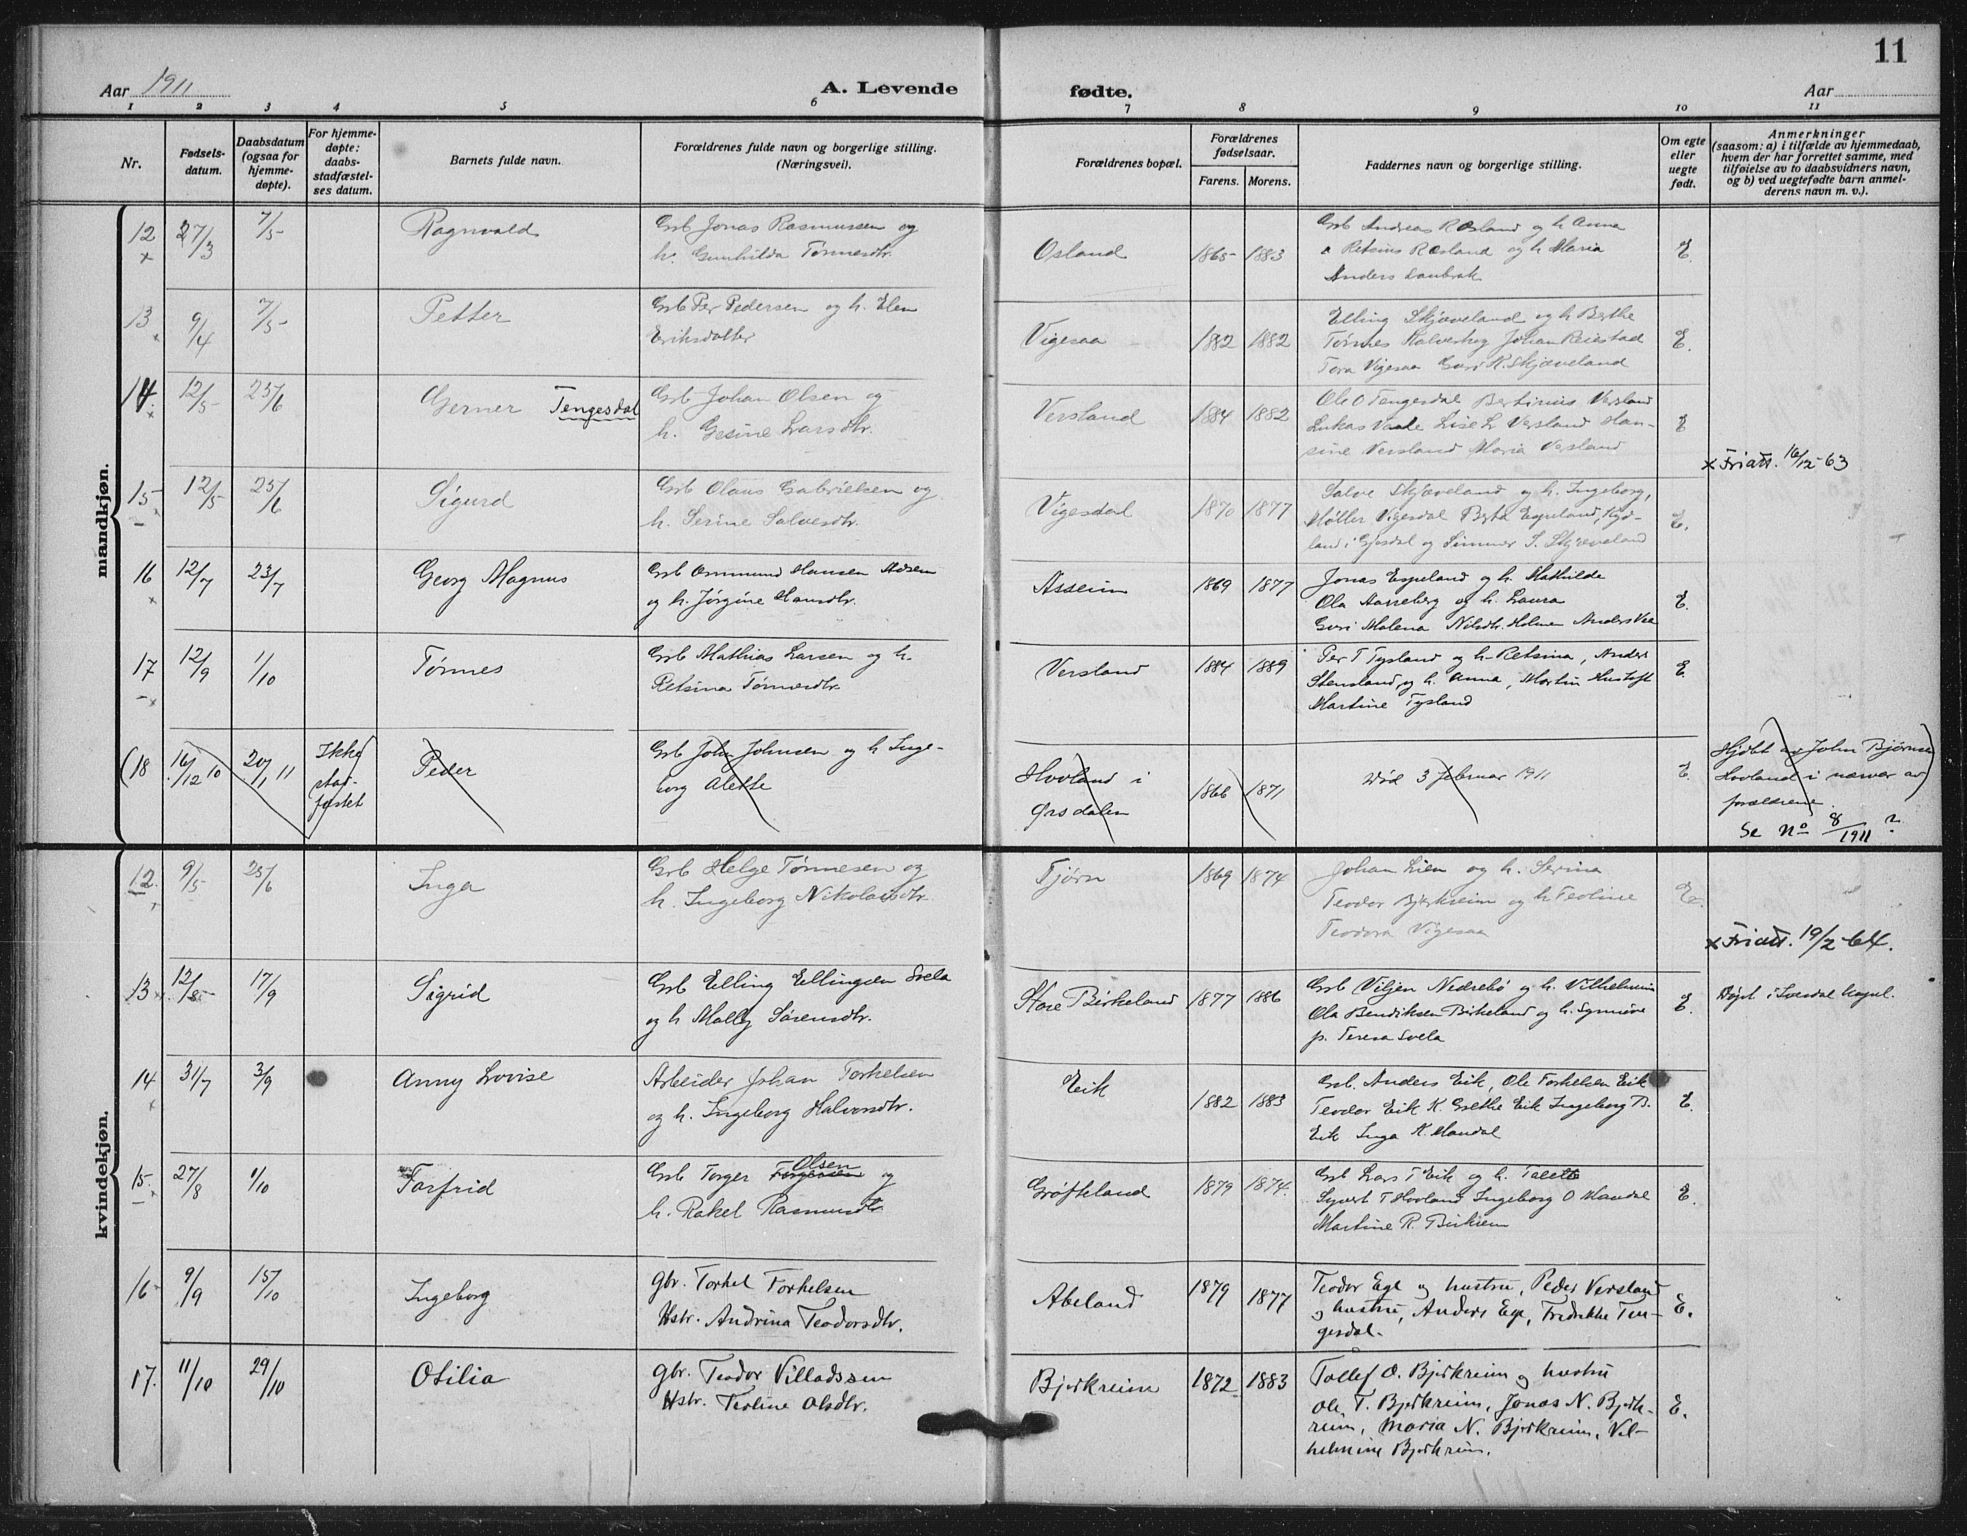 11
Aar 1911
A. Levende fødte.
Aar
1 2 3 4 5 6 7 8 9 10 11
Nr.
Fødsels-
datum.
Daabsdatum
(ogsaa for
hjemme-
døpte).
For hjemme-
døpte:
daabs-
stadfæstel-
ses datum.
Barnets fulde navn.
Forældrenes fulde navn og borgerlige stilling.
(Næringsvei).
Forældrenes bopæl.
Forældrenes
fødselsaar.
Farens. Morens.
Faddernes navn og borgerlige stilling.
Om egte
eller
uegte
født.
Anmerkninger
(saasom: a) i tilfælde av hjemmedaab,
hvem der har forrettet samme, med
tilføielse av to daabsvidners navn,
og b) ved uegtefødte barn anmel-
derens navn m. v.).
mandkjøn.
12 27/3 7/5 Ragnvald
Grb Jonas Rasmussen og
h. Gunhilda Tønnesdtr.
Osland 1865 1883
Grb Andreas Røsland og h Anna
Retsius Røsland og h Maria
Anders
E.
13 9/4 7/5 Petter
Grb Per Pedersen og h. Elen
Eriksdatter
Vigesaa 1882 1882
Elling Skjæveland og h Berthe
Tønnes Johan Reiestad
Tora Vigesaa Guri K. Skjæveland
E.
14. 12/5 25/6 Gerner Tengesdal
Grb Johan Olsen og
h. Gesine Larsdtr.
Versland 1884 1882
Ole O Tengesdal Bertinius Versland
Lukas Lise L Versland Han-
sine Versland Maria Versland
E
x Friatt. 16/12-63
15 12/5 25/6 Sigurd
Grb Olaus Gabrielsen og
h. Serine Salvesdtr.
Vigesdal 1870 1877
Salve Skjæveland og h. Ingeborg,
Møller Vigesdal Berta Espeland, Kyd-
land i Gjesdal og S. Skjæveland
E.
16 12/7 23/7 Georg Magnus
Grb Ommund Hansen
og h. Jørgine Hansdtr.
Asseim 1869 1877
Jonas Espeland og h. Mathilde
Ola og h. Laura
Guri Malena Nilsdtr. Anders
E.
17 12/9 1/10 Tønnes
Grb Mathias Larsen og h.
Retsina Tønnesdtr.
Versland 1884 1889
Per T Tysland og h. Retsina, Anders
Stensland og h. Anna, Martin Hustoft
Martine Tysland
E.
(18 16/12 10 20/1 11 Ikke
stad-
fæstet
Peder
Grb John Johnsen og h Inge-
borg Alette
Hovland i
Ørsdalen
1866 1871
død 3 februar 1911
E.
Hjdbt av John Bjørnsen)
Hovland i nærvær av
forældrene.
Se No 8/1911 ?
kvindekjøn.
12. 9/5 25/6 Inga
Grb Helge Tønnesen og
h. Ingeborg Nikolaisdtr.
Tjørn 1869 1874
Johan Lien og h. Serina
Teodor Bjerkreim og h Teoline
Teodora Vigesaa
E.
x Friatt. 19/2-64.
13 12/8 17/9 Sigrid
Grb Elling Ellingsen Svela
og h Mally Sørensdtr.
Store Birkeland 1877 1886
Grb Viljen Nedrebø og h. Vilhelmine
Ola Bendiksen Birkeland og h. Synnøve
p. Teresa Svela
E.
Døpt i kapel.
14 31/7 3/9 Anny Lovise
Arbeider Johan Torkelsen
og h. Ingeborg Halvorsdtr.
Eik 1882 1883
Grb. Anders Eik, Ole Torkelsen Eik
Teodor Eik K. Grethe Eik Ingeborg B.
Eik Inga K. Maudal
E.
15. 27/8 1/10 Torfrid
Grb Torger Torgersen Olsen og
h. Rakel Rasmusdtr
Grøfteland 1879 1874.
Grb Lars T Eik og h. Talette
Syvert T Hovland Ingeborg O Maudal
Martine R. Birkrem
E.
16 9/9 15/10 Ingeborg
gbr. Torkel Torkelsen
Hstr. Andrina Teodorsdtr.
Abeland 1879 1877
Teodor Ege og hustru, Peder Versland
og hustru, Anders Ege, Fredrikke Ten-
gesdal.
E.
17. 11/10 29/10 Otilia
gbr. Teodor Villadssen
Hstr. Teoline Olsdtr.
Bjerkreim 1872 1883
Tollef O. Bjerkreim og hustru
Ole T. Bjerkreim, Jonas N. Bjerk-
reim, Maria N. Bjerkreim, Vil-
helmine Bjerkreim.
E.